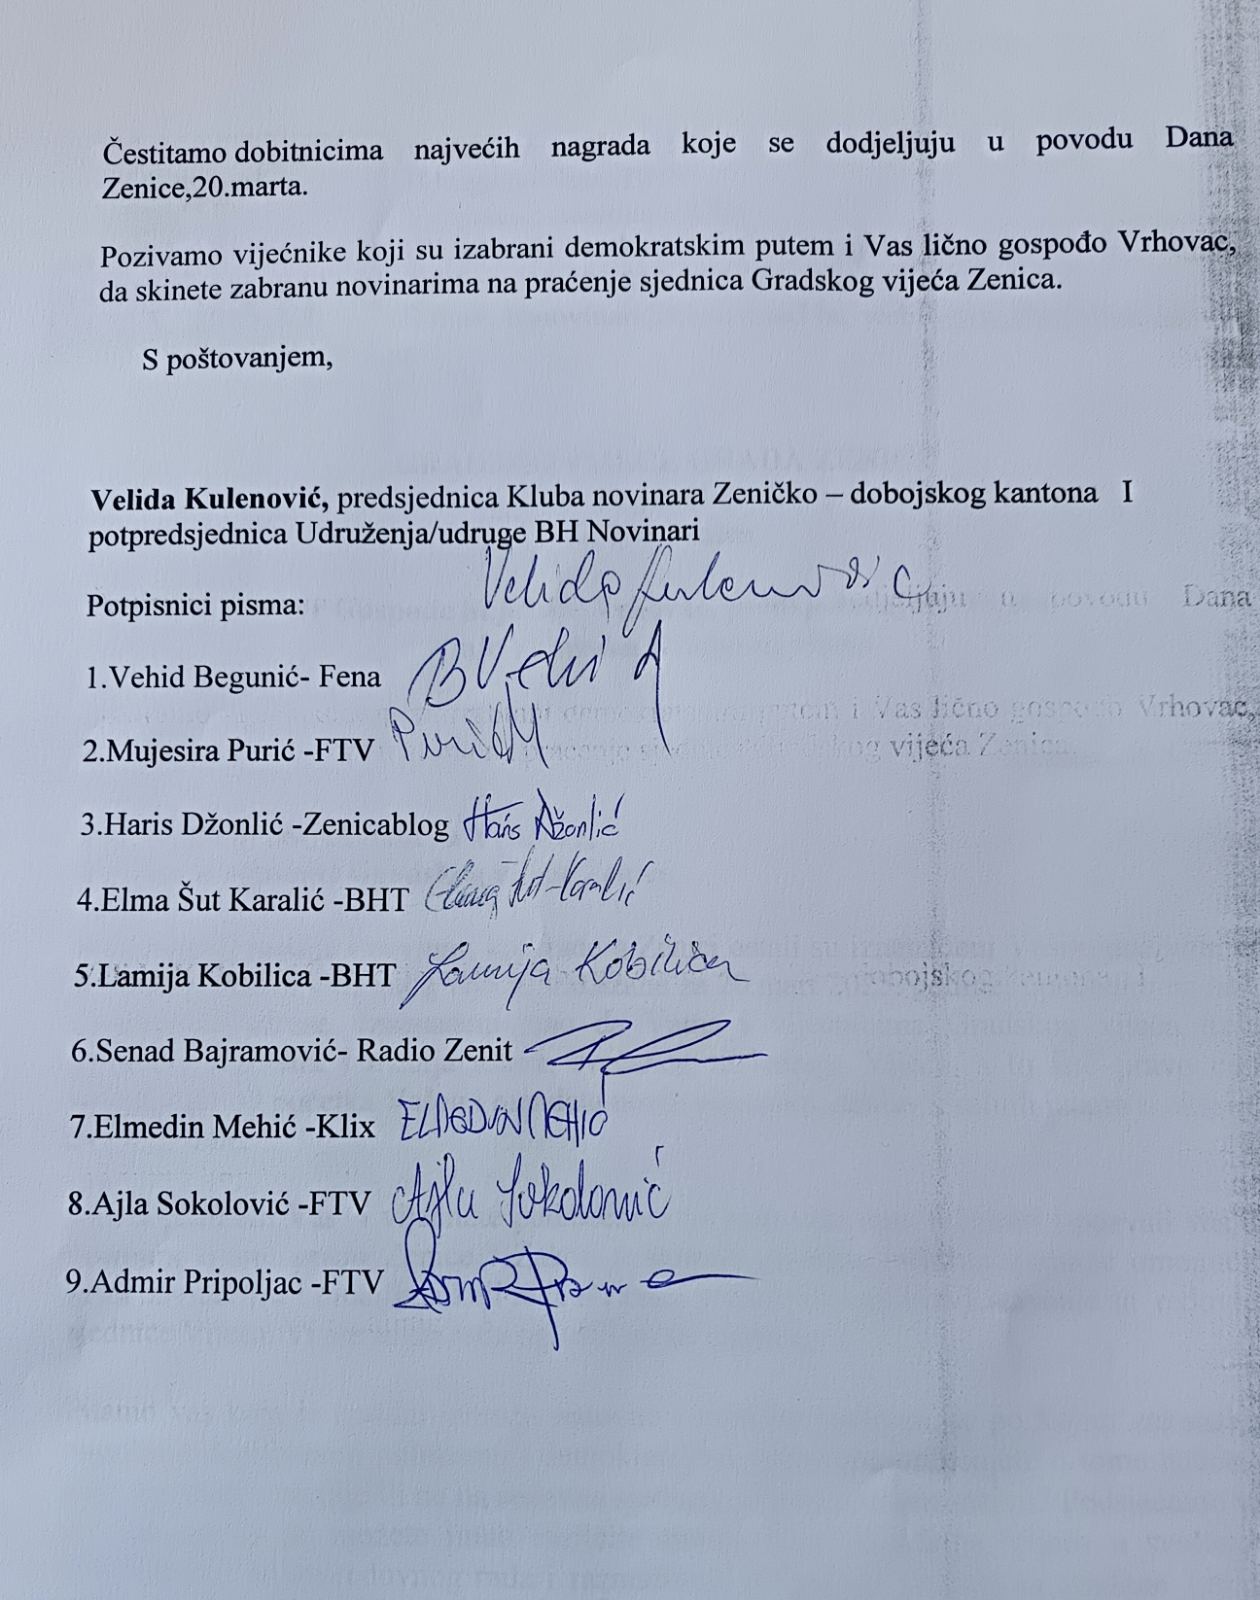 Čestitamo dobitnicima najvećih nagrada koje se dodjeljuju u povodu Dana
Zenice,20.marta.
Pozivamo vijećnike koji su izabrani demokratskim putem i Vas lično gospođo Vrhovac,
da skinete zabranu novinarima na praćenje sjednica Gradskog vijeća Zenica.
S poštovanjem,
Velida Kulenović, predsjednica Kluba novinara Zeničko – dobojskog kantona I
potpredsjednica Udruženja/udruge BH Novinari
Velida Kulenović
Potpisnici pisma:
1.Vehid Begunić- Fena
2.Mujesira Purić -FTV Purić M
3.Haris Džonlić -Zenicablog Haris Džonlić
4.Elma Šut Karalić -BHT Elma Šut-Karalić
5.Lamija Kobilica -BHT Lamija Kobilica
6.Senad Bajramović- Radio Zenit
7.Elmedin Mehić -Klix ELMEDIN MEHIĆ
8.Ajla Sokolović -FTV Ajla Sokolović
9.Admir Pripoljac -FTV